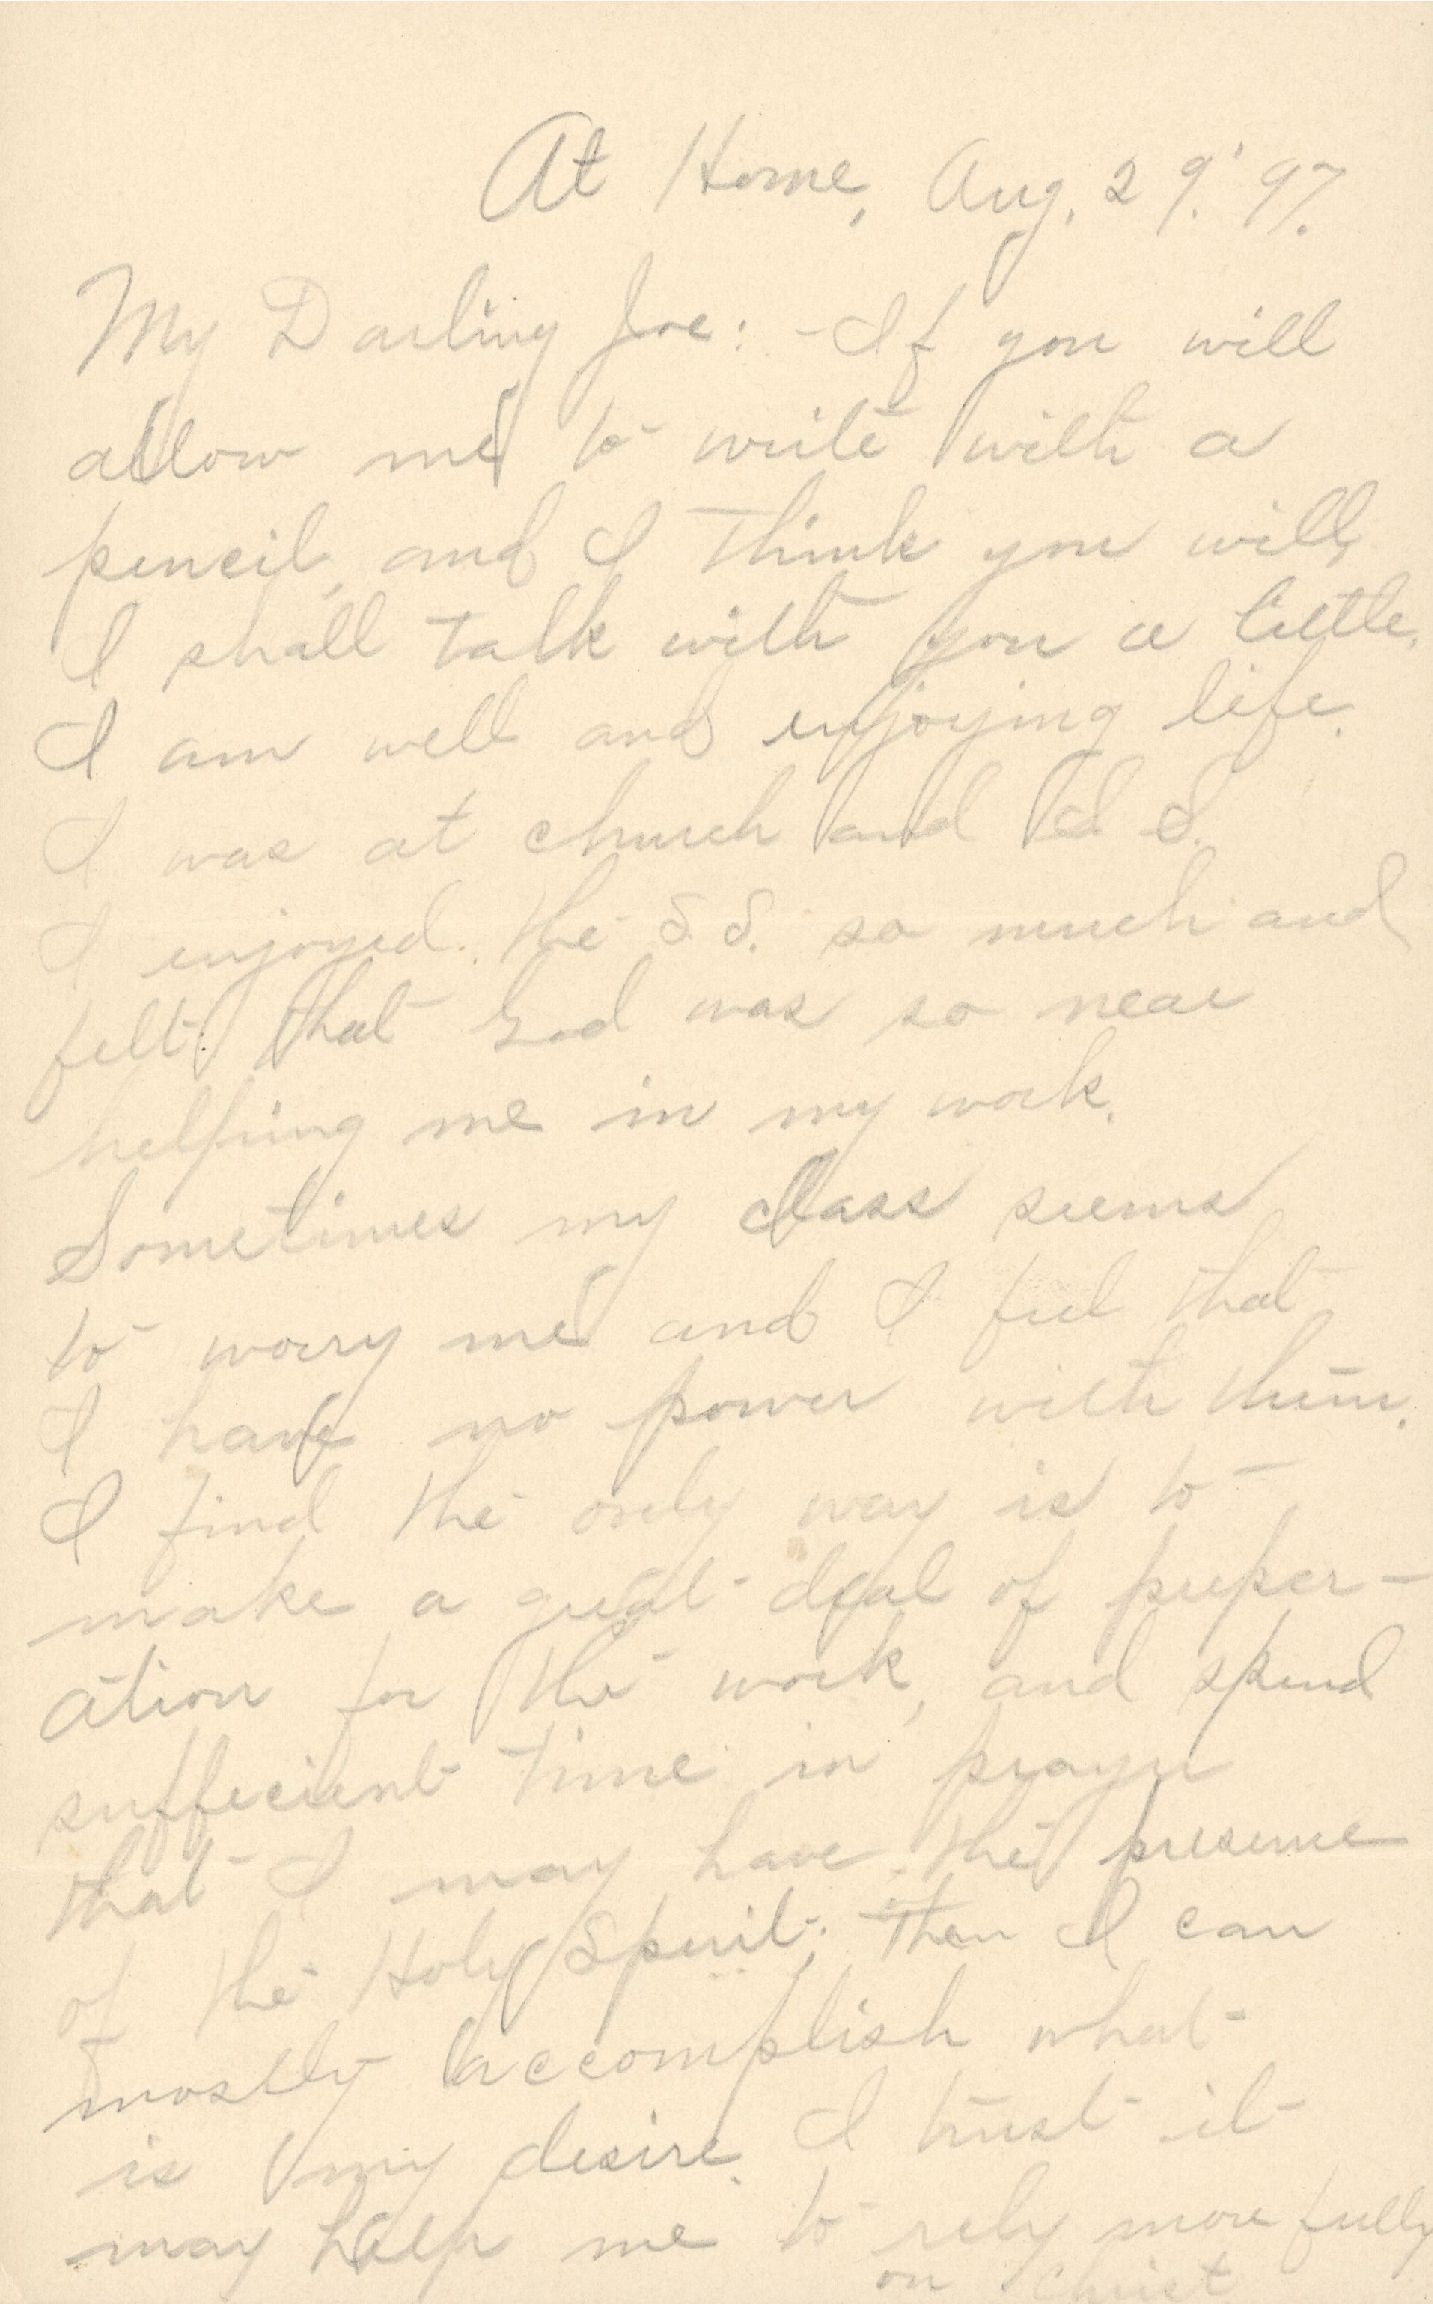 At Home, Aug. 29.' 97.
My Darling Joe: - If you will
allow me to write with a
pencil, and I think you will,
I shall talk with you a little.
I am well and enjoying life.
I was at church and S. S.
I enjoyed the S. S. so much and
felt that God was so near
helping me in my work.
Sometimes my class seems
to worry me and I feel that
I have no power with them.
I find the only way is to
make a great deal of preper-
ation for the work, and spend
sufficient time in prayer
that I may have the presence
of the Holy Spirit. Then I can
mostly accomplish what
is my desire. I trust it
may help me to rely more fully
on Christ